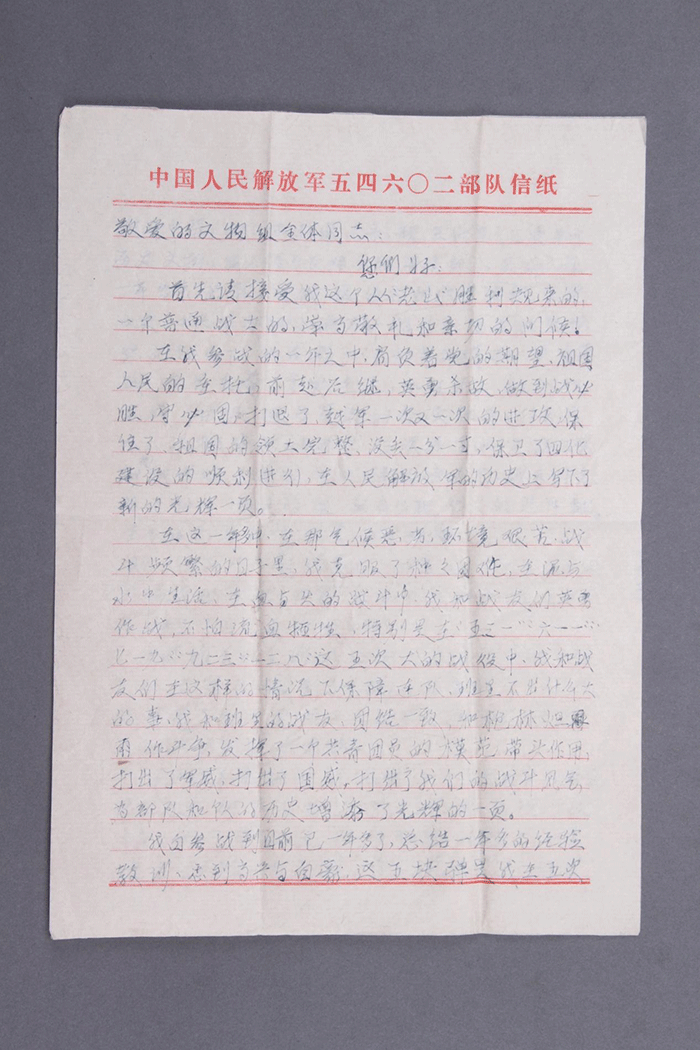 中国人民解放军五四六〇二部队信纸
敬爱的文物组全体同志：
您们好：
首先请接受我这个从老山胜利归来的，
一个普通战士的，崇高敬礼和亲切的问候！
在我参战的一年之中，肩负着党的期望，祖国
人民的重托，前赴后继，英勇杀敌，做到战必
胜，守必固，打退了越军一次又一次的进攻，保
住了祖国的领土完整，没丢一分一寸，保卫了四化
建设的顺利进行，在人民解放军的历史上写下了
新的光辉一页。
在这一年中，在那气候恶劣，环境艰苦，战
斗频繁的日子里，我克服了种种困难，在泥与
水中生活，在血与火的战斗中，我和战友们英勇
作战，不怕流血牺牲，特别是在"五三一""六一一"
"七一九""九二三""一二八"这五次大的战役中，我和战
友们在这样的情况下保障连队，班里不出什么大
的事，我和班里的战友，团结一致，和枪林
雨作斗争，发挥了一个共青团员的模范，带头作用，
打出了军威，打出了国威，打出了我们的战斗风
为部队和的历史增添了光辉的一页。
我自参战到目前已一年多了，总结一年多的经验
教训，感到，这五块弹片我在五次